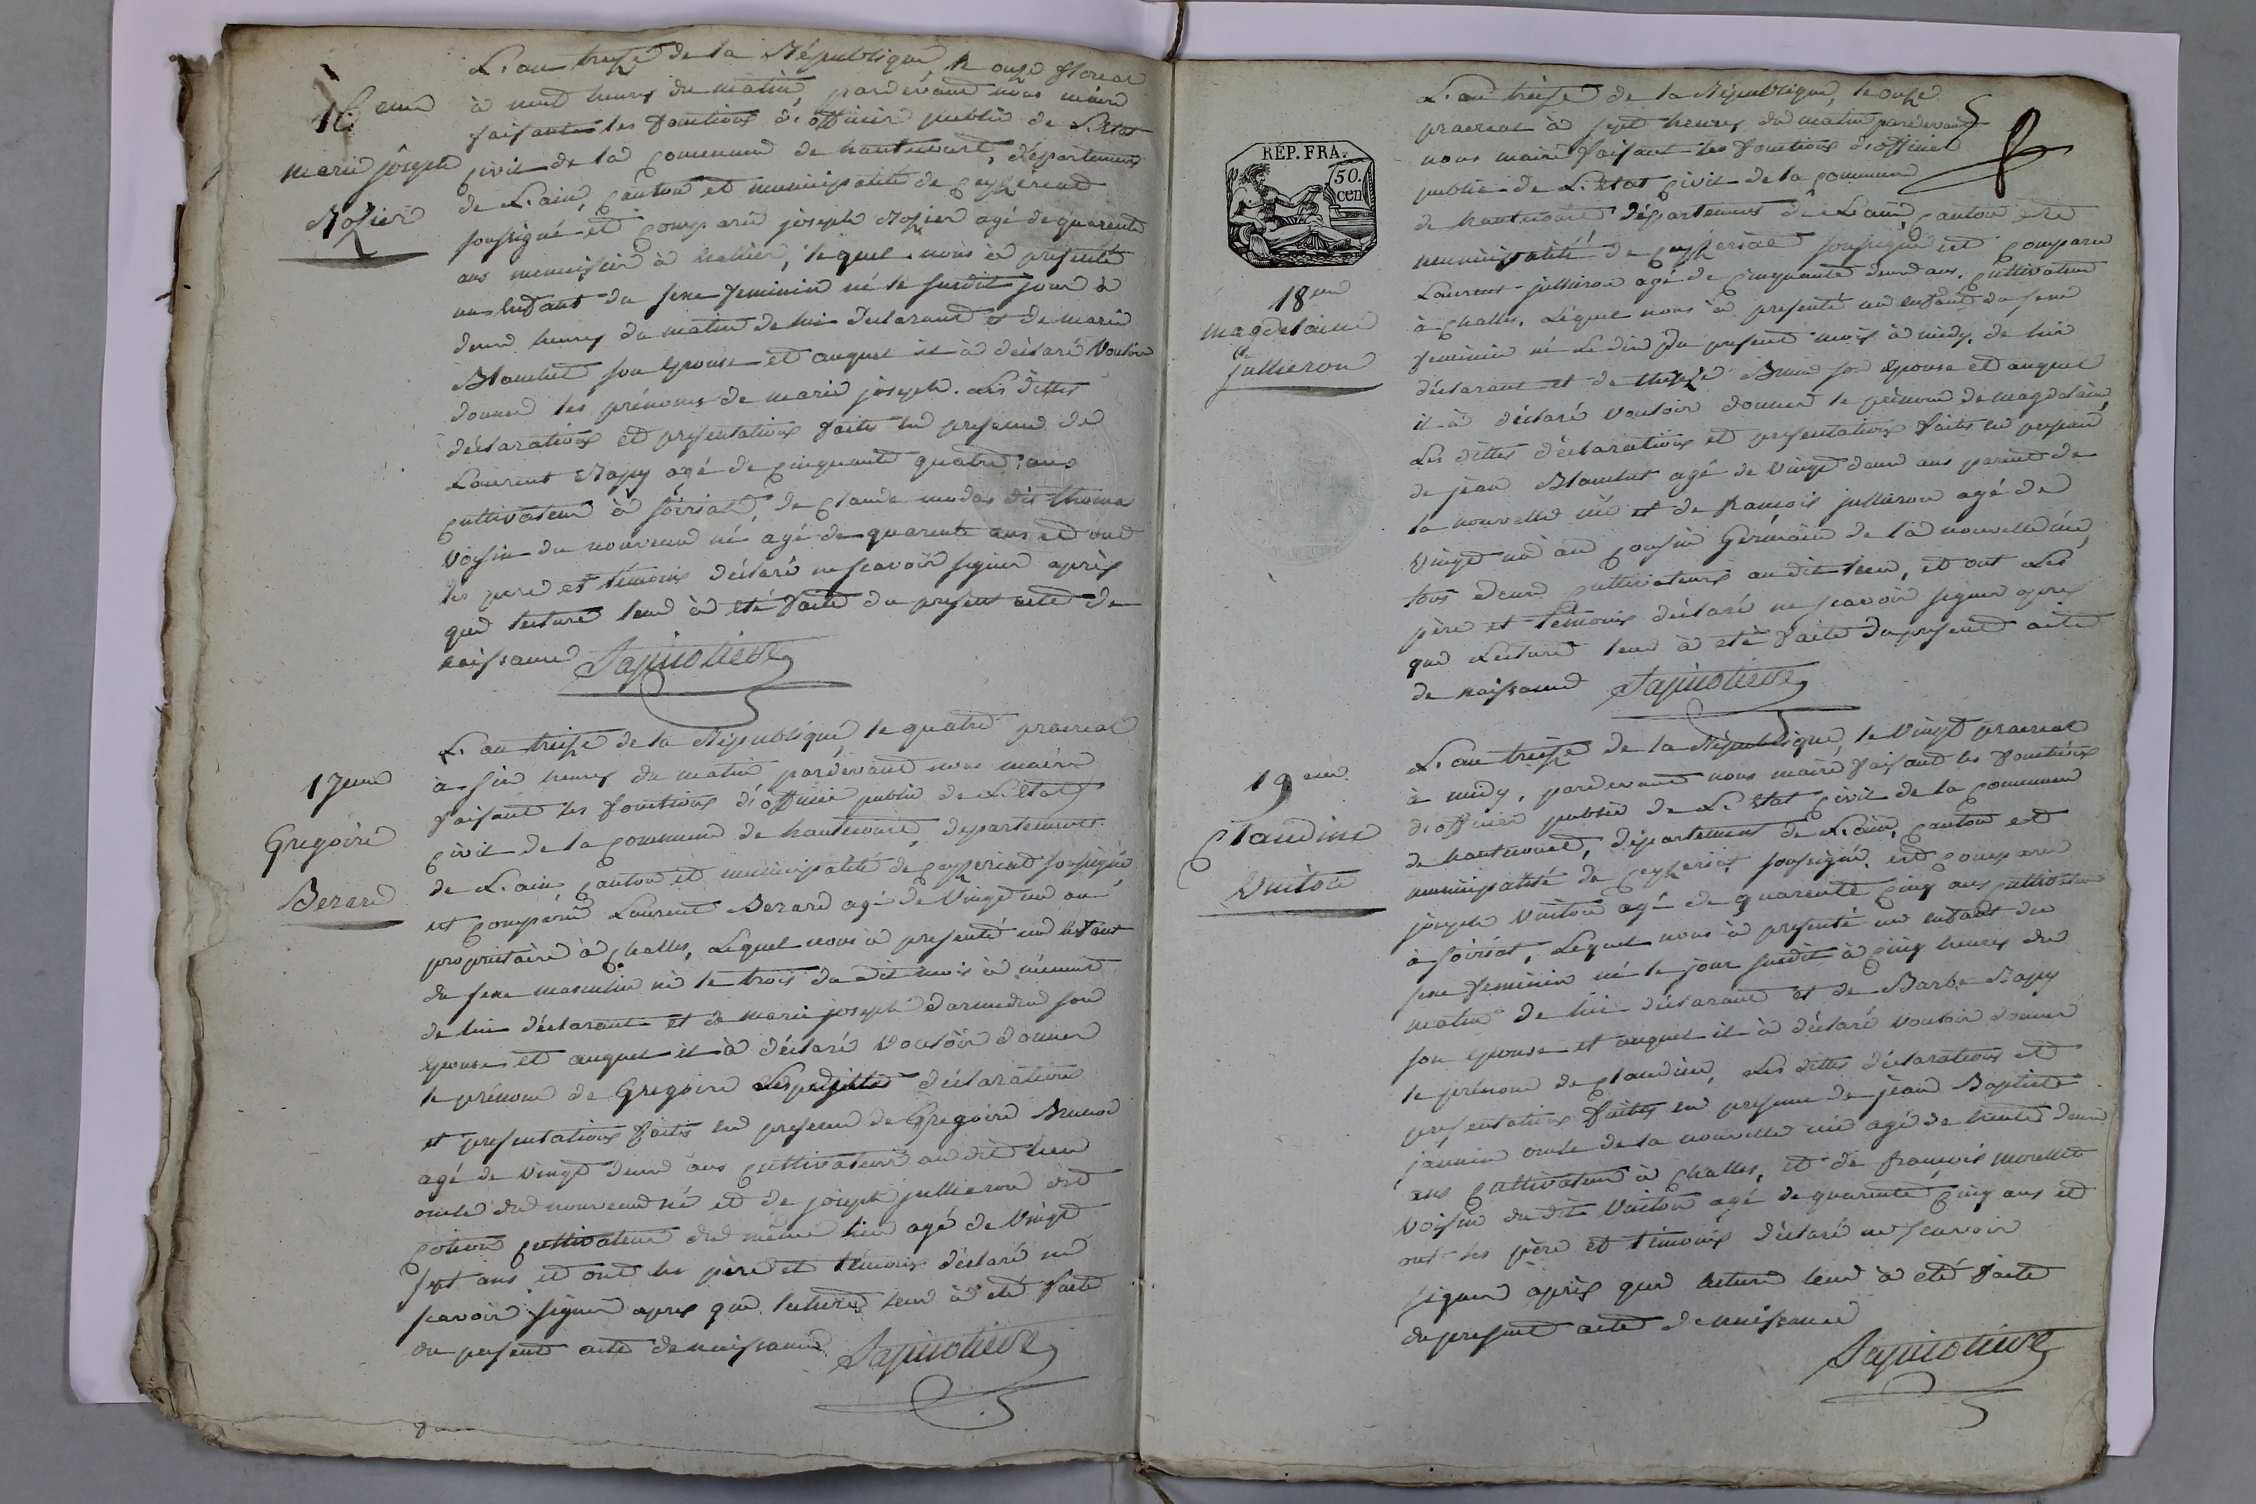 L'an treize de la République, le onze floreal
16eme
à neuf heures du matin, pardevant nous maire
faisant les fonctions d'officier public de L'Etat
marie joseph
civil de la commune de hautecourt, département
de L'ain, canton et municipalité de ceyzeriat
Rozier
soussigné est comparu joseph Rozier agé de quarente
ans menuisier à , lequel nous à presenté
un enfant du sexe feminin né le susdit jour à
deux heures du matin de lui declarant et de marie
Blanchet son Epouse et auquel il à déclaré vouloir
donner les prénoms de marie joseph. Les dittes
déclarations et presentations faites en presence de
Laurent Rapy agé de cinquante quatre ans
cultivateur à soiriat, de claude modas dit thoma
voisin du nouveau né agé de quarente ans et ont
les pere et témoins déclaré ne scavoir signer après
que lecture leur à été faite du present acte de
naissance
L'an treize de la République, le quatre praireal
17eme
à six heures du matin pardevant nous maire
faisant les fonctions d'officier public de L'Etat
Gregoire
civil de la commune de hautecourt, departement
de L'ain canton et municipalité de ceyzeriat soussigné
Berard
est comparu Laurent Berard agé de vingt un an
propriétaire à challes, Lequel nous à presenté un enfant
du sexe masculin né le trois du dit mois à minuit
de lui déclarant et de marie joseph son
epouse et auquel il à déclaré vouloir donner
le prénom de Gregoire Les dittes déclarations
et presentations faites en presence de Gregoire
agé de vingt deux ans cultivateur au dit lieu
oncle du nouveau né et de joseph jullieron dit
cultivateur du même lieu agé de vingt
sept ans et ont les père et témoins déclaré ne
scavoir signer après que lecture leur à été faite
du present acte de naissance
L'an treize de la République, le onze
praireal à sept heures du matin pardevant
nous maire faisant les fonctions d'officier
RÉP. FRA.
50.
cen
public de L'Etat civil de la commune
de hautecourt département de L'ain canton et
municipalité de ceyzeriat soussigné est comparu
18eme
Laurent jullieron agé de cinquante deux ans, cultivateur
magdelaine
à challes, Lequel nous à presenté un enfant du sexe
jullieron
feminin né Le dix du present mois à midy, de lui
déclarant et de thereze Brun son epouse et auquel
il à déclaré vouloir donner le prénom de magdelaine,
Les dittes déclarations et presentations faites en presence
de jean Blanchet agé de vingt deux ans parent de
la nouvelle née et de francois jullieron agé de
vingt un an cousin Germain de la nouvelle née,
tous deux cultivateurs au dit lieu, et ont Les
père et témoins déclaré ne scavoir signer apres
que Lecture leur à été faite du present acte
de naissance
L'an treize de la République, le vingt praireal
19eme
à midy, pardevant nous maire faisant les fonctions
d'officier public de L'Etat civil de la commune
Claudine
de hautecourt, département de L'ain, canton et
municipalité de ceyzeriat soussigné, est comparu
Vuiton
joseph Vuiton agé de quarente cinq ans cultivateur
à soiriat, Lequel nous à presenté un enfant du
sexe feminin né le jour susdit à cinq heures du
matin de lui déclarant et de Barbe Rapy
son epouse et auquel il à déclaré vouloir donner
le prénom de claudine, Les dittes déclarations et
presentations faites en presence de jean Baptiste
jannin oncle de la nouvelle née agé de trente deux
ans cultivateur à challes, et de francois morellet
voisin du dit Vuiton agé de quarente cinq ans et
ont les père et témoins déclaré ne scavoir
signer après que lecture leur à été faite
du present acte de naissance